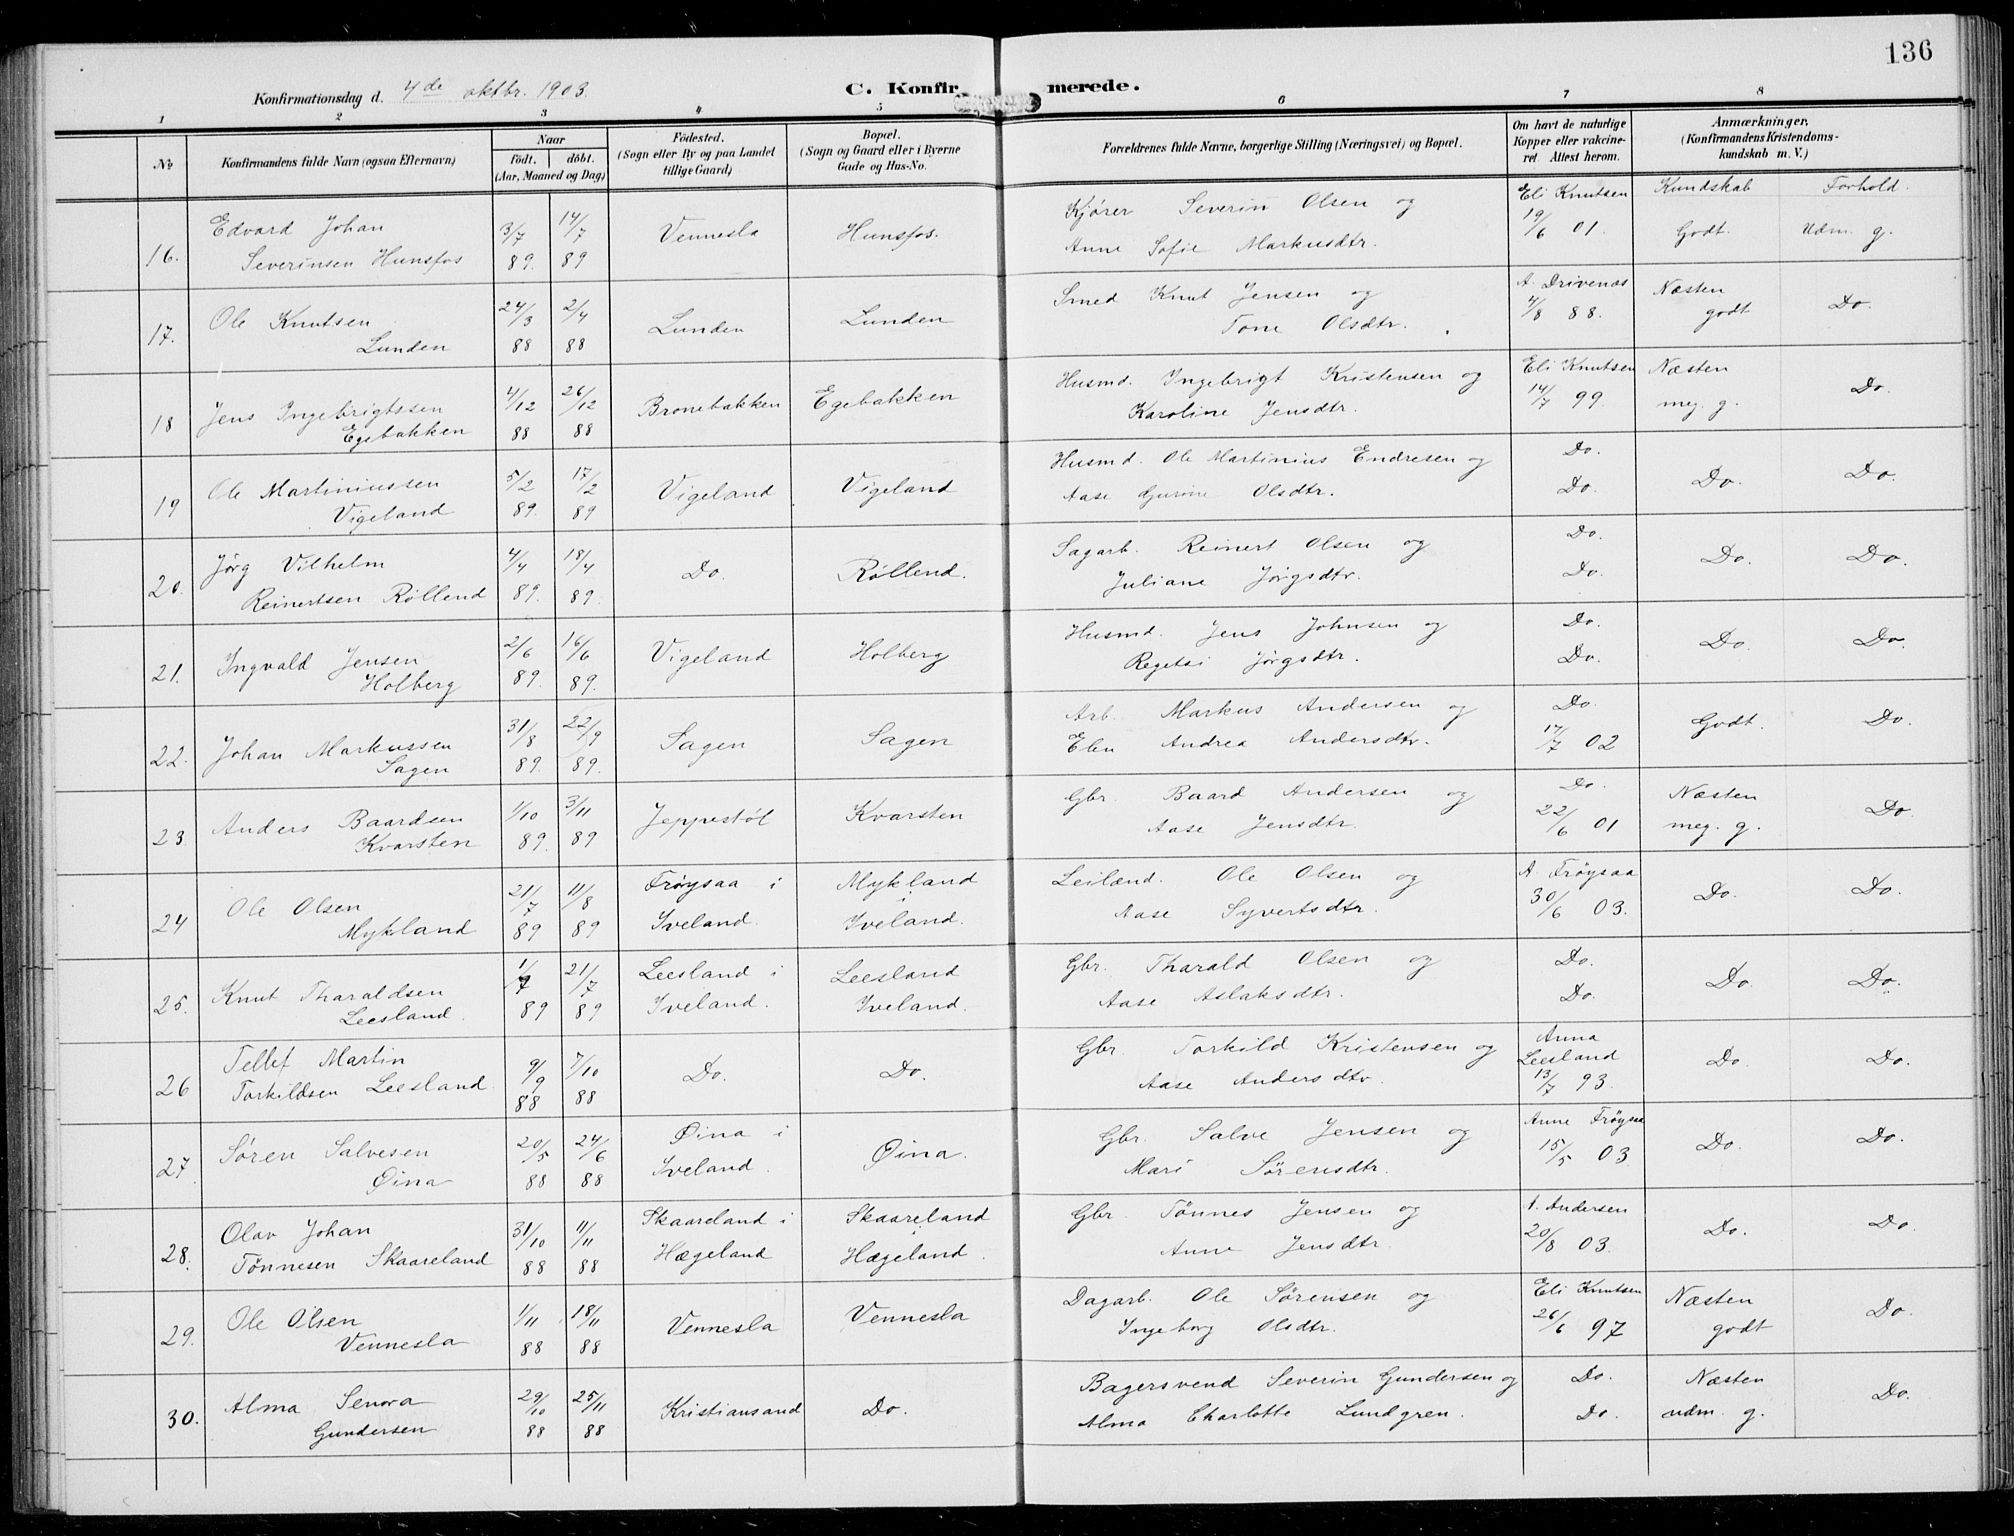 136
Konfirmationsdag d. 4de oktbr. 1903.
C. Konfirmerede.
1 2 3 4 5 6 7 8
No
Konfirmandens fulde Navn (ogsaa Efternavn)
Naar
født. døbt.
(Aar, Maaned og Dag)
Födested.
(Sogn eller By og paa Landet
tillige Gaard)
Bopæl.
(Sogn og Gaard eller i Byerne
Gade og Hus-No.
Forældrenes fulde Navne, borgerlige Stilling (Næringsvei) og Bopæl.
Om havt de naturlige
Kopper eller vakcine-
ret. Attest herom.
Anmærkninger.
(Konfirmandens Kristendoms-
kundskab m. V.)
Kundskab Forhold.
16. Edvard Johan 3/7 14/7 Vennesla Hunsfos. Kjører Severin Olsen og Eli Knutsen
Severinsen Hunsfos 89. 89 Anne Sofie Markusdtr. 19/6 01. Godt. Udm. g.
17. Ole Knutsen 24/3 2/4 Lunden Lunden Smed Knut Jensen og A. Drivenes Næsten Do.
Lunden 88 88 Tone Olsdtr. 4/8 88. godt
18 Jens Ingebrigtssen 4/12 26/12 Bronebakken Egebakken Husmd. Ingebrigt Kristensen og Eli Knutsen Næsten Do.
Egebakken 88 88 Karoline Jensdtr. 14/7 99. meg. g.
19 Ole Martiniussen 5/2 17/2 Vigeland Vigeland Husmd. Ole Martinius Endresen og Do. Do. Do.
Vigeland 89. 89 Aase Gurine Olsdtr. Do.
20. Jørg Vilhelm 4/4 18/4 Do. Røllend. Sagarb. Reinert Olsen og Do. Do. Do.
Reinertsen Røllend 89. 89. Juliane Jørgsdtr. Do.
21. Ingvald Jensen 2/6 16/6 Vigeland Holberg Husmd. Jens Johnsen og Do. Do. Do.
Holberg 89. 89. Jørgsdtr. Do.
22. Johan Markussen 31/8 22/9 Sagen Sagen Arb. Markus Andersen og Do. Godt. Do.
Sagen 89. 89. Elen Andrea Andersdtr. 17/7 02
23. Anders Baardsen 1/10 3/11 Jeppestøl Kvarsten Gbr. Baard Andersen og Do. Næsten Do.
Kvarsten 89. 89 Aase Jensdtr. 22/6 01 meg. g.
24 Ole Olsen 21/7 11/8 Frøysaa i Mykland Leilænd. Ole Olsen og A. Frøysaa Do. Do.
Mykland 89 89 Iveland. Iveland. Aase Syvertsdtr. 30/6 03.
25. Knut Tharaldsen 1/7 21/7 Leesland i Leesland Gbr. Tharald Olsen og Do. Do. Do.
Leesland. 89 89 Iveland. Iveland. Aase Aslaksdtr. Do.
26 Tellef Martin 9/9 7/10 Do. Do. Gbr. Torkild Kristensen og Anna Leesland Do. Do.
Torkildsen Leesland. 88 88 Aase Andersdtr. 13/7 93.
27. Søren Salvesen 20/5 24/6 Øina i Øina. Gbr. Salve Jensen og Anne Frøysaa Do. Do.
Øina 88 88 Iveland. Mari Sørensdtr. 15/5 03.
28. Olav Johan 31/10 11/11 Skaareland i Skaareland Gbr. Tønnes Jensen og A. Andersen Do. Do.
Tønnesen Skaareland 88 88 Hægeland Hægeland. Anne Jensdtr. 20/8 03.
29. Ole Olsen 1/11 18/11 Vennesla Vennesla Dagarb. Ole Sørensen og Eli Knutsen Næsten Do.
Vennesla 88 88 Ingeborg Olsdtr. 26/6 97 godt
30. Alma Senora 29/10 25/11 Kristiansand Do. Bagersvend Severin Gundersen og Do. Næsten Do.
Gundersen 88 88 Alma Charlotte Lundgren. Do. udm. g.